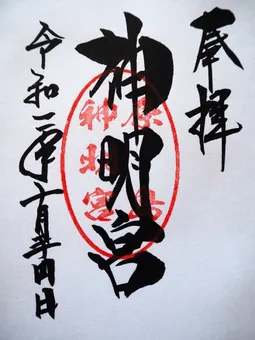 奉拝
神明宮
令和二年十月廿四日